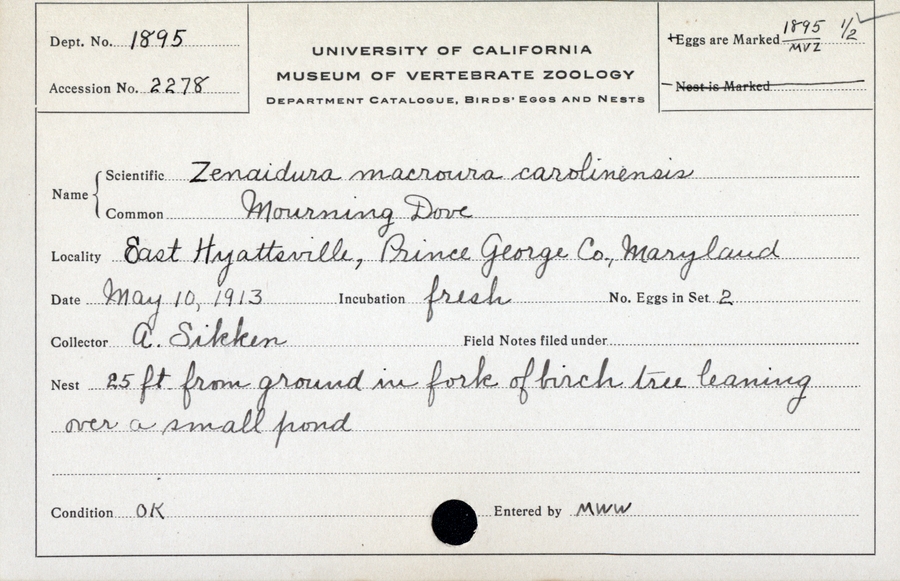 Dept. No. 1895
Accession No. 2278
UNIVERSITY OF CALIFORNIA
MUSEUM OF VERTEBRATE ZOOLOGY
DEPARTMENT CATALOGUE, BIRDS' EGGS AND NESTS
+Eggs are Marked 1895/MVZ 1/2
Nest is Marked
Name
Scientific Zenaidura macroura carolinensis
Common Mourning Dove
Locality East Hyattsville, Prince George Co., Maryland
Date May 10, 1913 Incubation fresh No. Eggs in Set 2
Collector A. Sikken Field Notes filed under
Nest 25 ft from ground in fork of birch tree leaning
over a small pond
Condition OK Entered by MWW